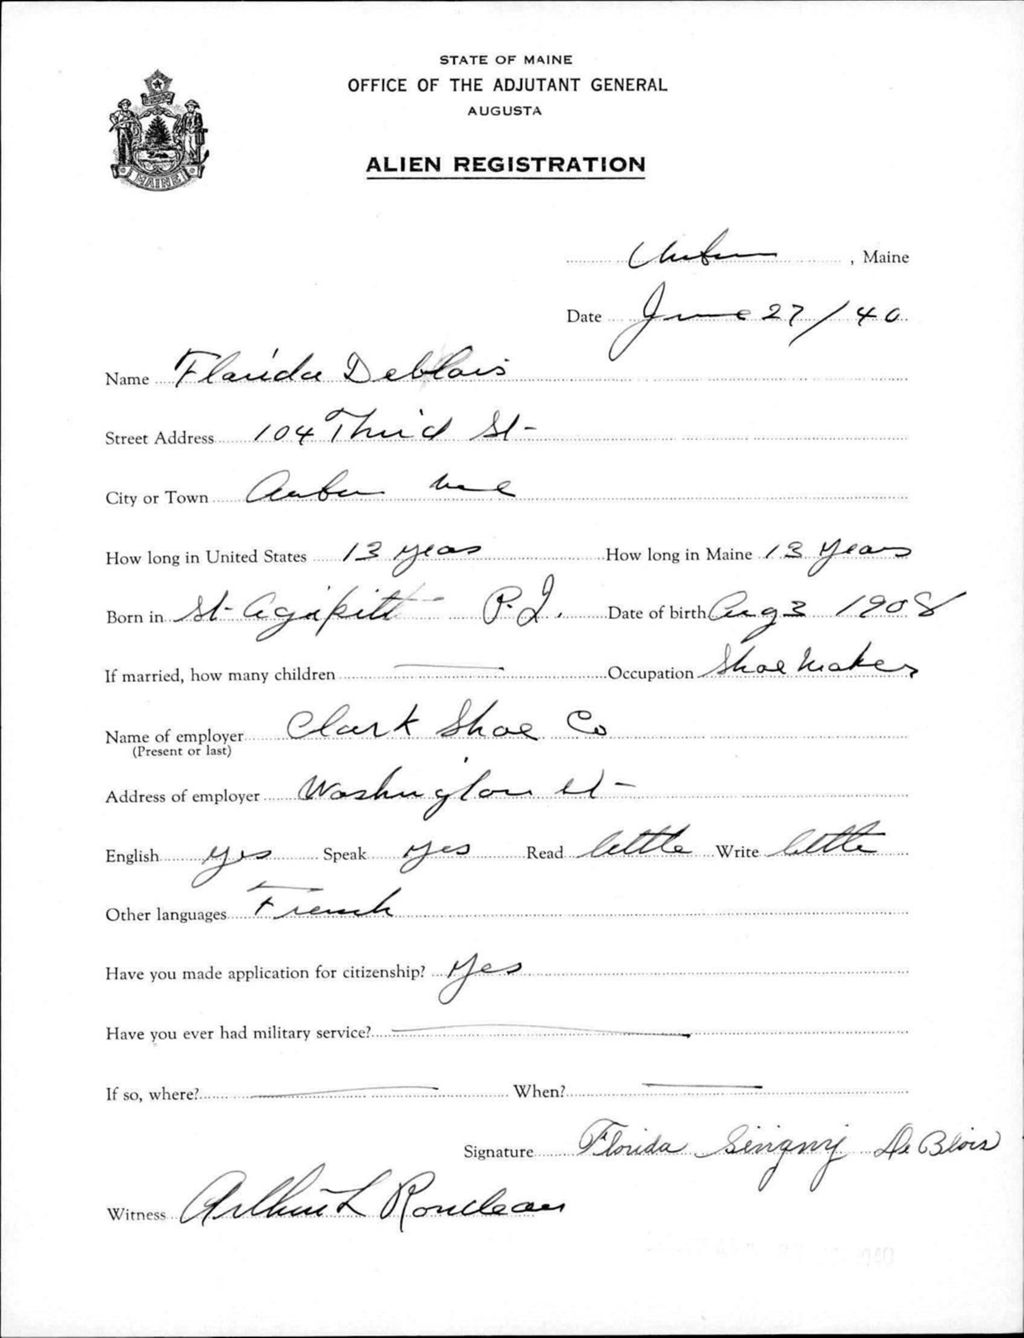 STATE OF MAINE
OFFICE OF THE ADJUTANT GENERAL
AUGUSTA
ALIEN REGISTRATION
MAINE
Auburn, Maine
Date June 27/40
Name Florida Deblois
Street Address 104 Third St-
City or Town Auburn Me
How long in United States 13 years How long in Maine 13 years
Born in St- Agapitt P.Q. Date of birth Aug 3 1908
If married, how many children Occupation Shoe Maker
Name of employer Clark Shoe Co
(Present or last)
Address of employer Washington St-
English yes Speak yes Read little Write little
Other languages French
Have you made application for citizenship? Yes
Have you ever had military service?
If so, where? When?
Signature Florida De Blois
Witness Arthur L Rondeau